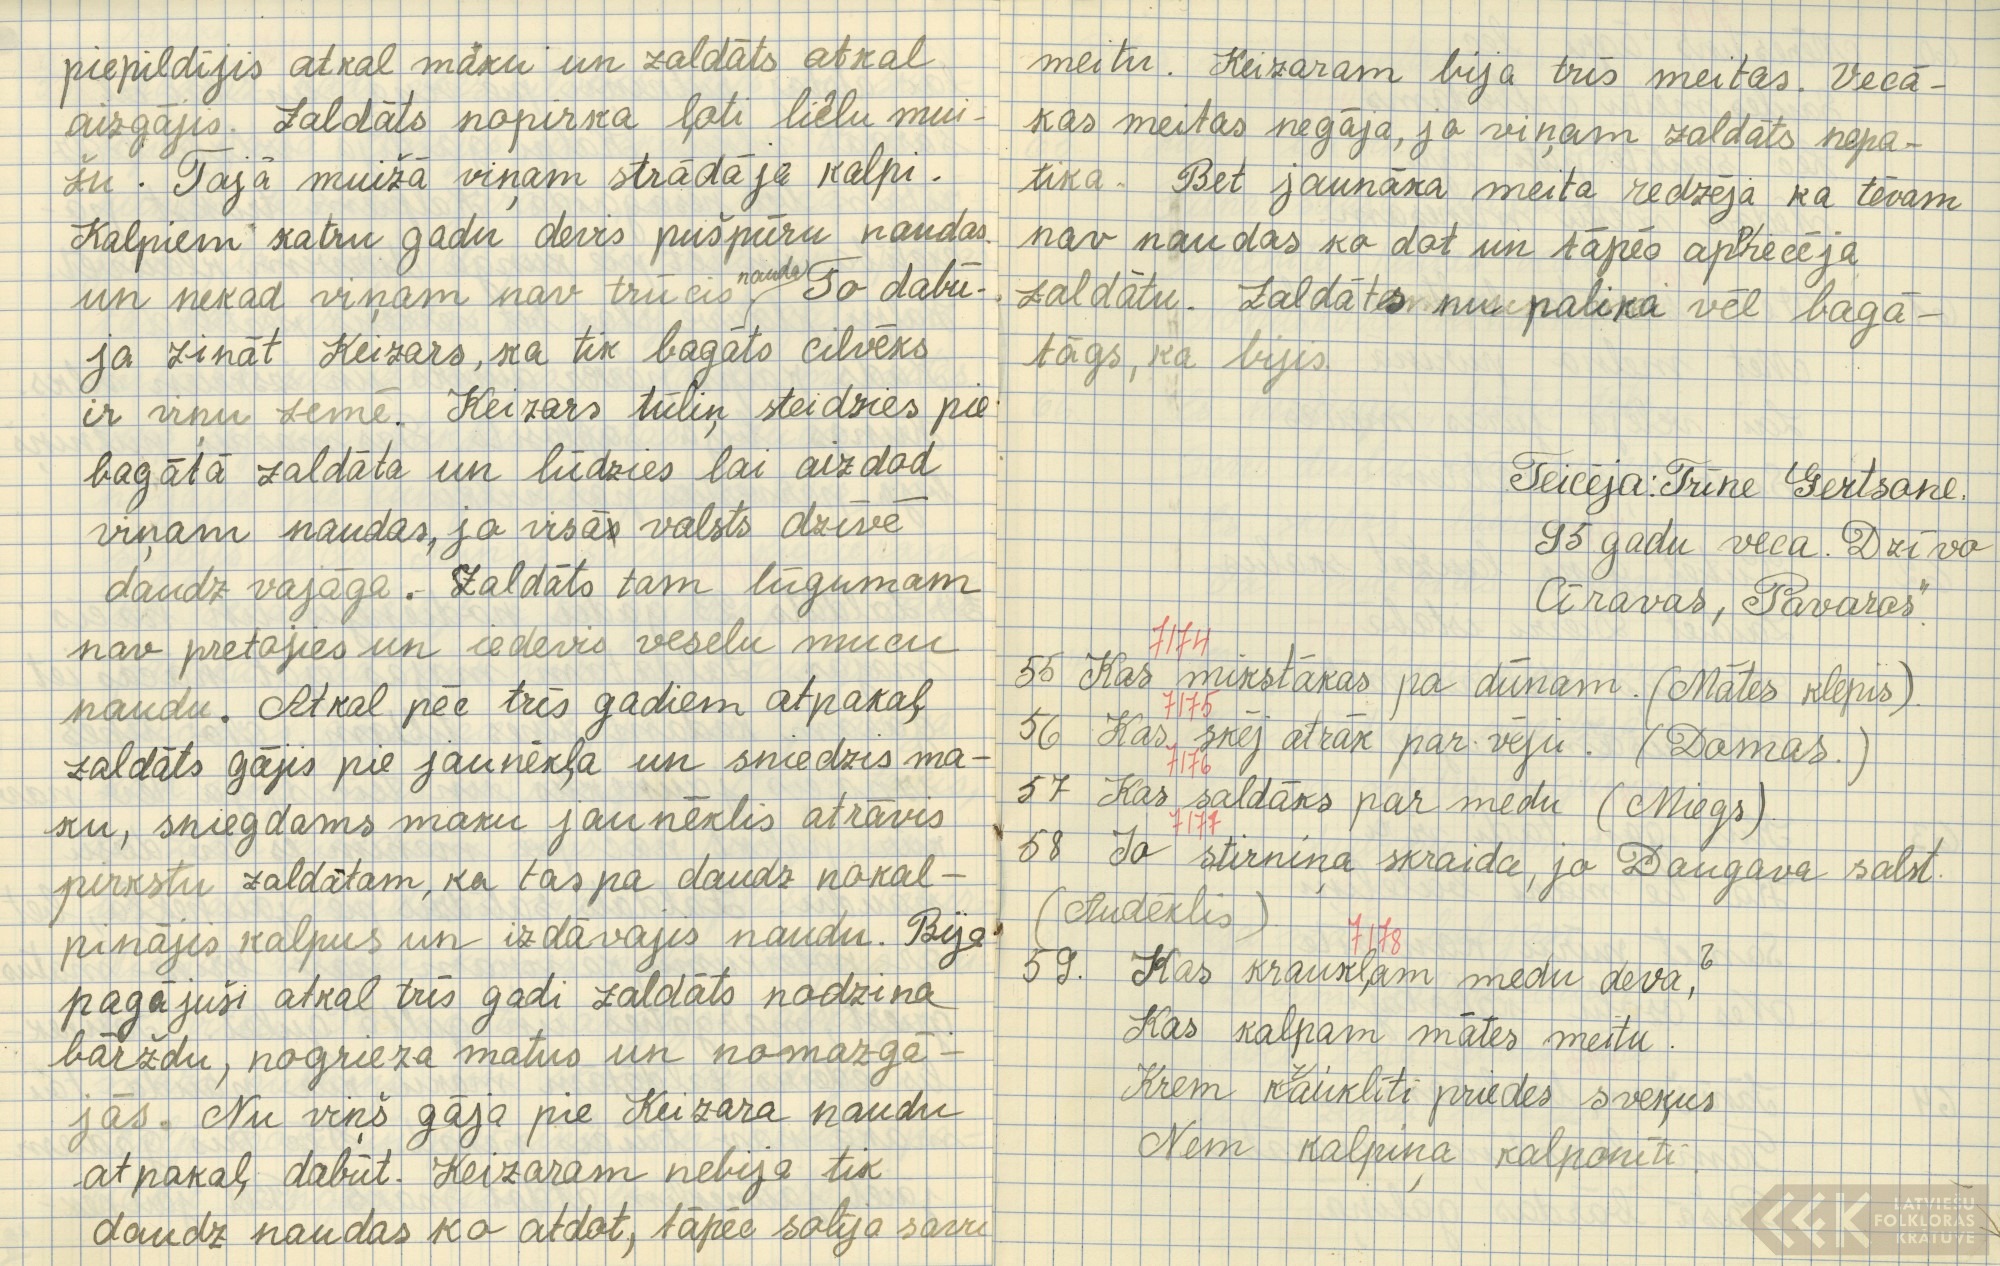 piepildījis atkal māku un zaldāts atkal
aizgājis. Zaldāts nopirka ļoti lielu mui-
žu. Tajā muižā viņam strādāja kalpi.
Kalpiem katru gadu devis pušpūru naudas
un nekad viņam nav trūcis nauda. To dabū-
ja zināt Keizars, ka tik bagāts cilvēks
ir viņu zemē. Keizars tūliņ steidzies pie
bagātā zaldāta un lūdzies lai aizdod
viņam naudas, jo visās valsts dzīvē
daudz vajāga. Zaldāts tam lūgumam
nav pretojies un iedevis veselu mucu
naudu. Atkal pēc trīs gadiem atpakaļ
zaldāts gājis pie jaunēkļa un sniedzis ma-
ku, sniegdams maku jaunēklis atrāvis
pirkstu zaldātam, ka tas pa daudz nokal-
pinājis kalpus un izdāvājis naudu. Bija
pagājuši atkal trīs gadi zaldāts nodzina
bārždu, nogrieza matus un nomazgā-
jās. Nu viņš gāja pie Keizara naudu
atpakaļ dabūt. Keizaram nebija tik
daudz naudas ko atdot, tāpēc solīja savu
meitu. Keizaram bija trīs meitas. Vecā-
kas meitas negāja, jo viņam zaldāts nepa-
tika. Bet jaunāka meita redzēja ka tēvam
nav naudas ko dot un tāpēc apprecēja
zaldātu. Zaldāts nu palika vēl bagā-
tāgs, ka bijis.
Teicēja: Trīne Gertsone.
95 gadu veca. Dzīvo
Cīravas, Pavaros".
7174
55 Kas mikstākas pa dūnam. (Mātes klēpis).
7175
56 Kas skēj atrāk par vēju. (Domas.)
7176
57 Kas saldāks par medu (Miegs)
7177
58 Jo stirniņa skraida, jo Daugava salst.
(Audēklis)
7178
59. Kas kraukļam medu deva,?
Kas kalpam mātes meitu.
Krem kraukliti priedes sveķus
Nem kalpiņa kalponīti.
LATVIEŠU
FOLKLORAS
KRATUVE